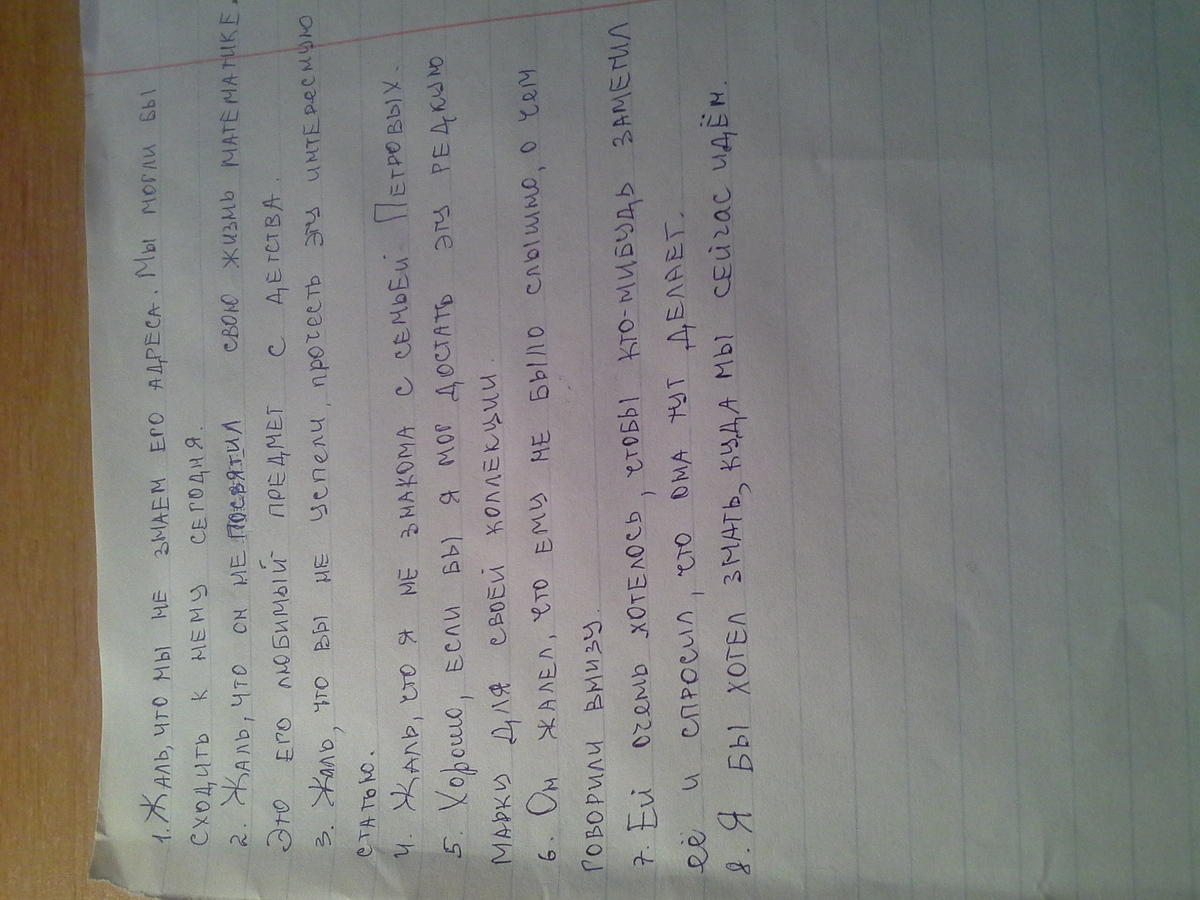 1. Жаль, что мы не знаем его адреса. Мы могли бы
сходить к нему сегодня.
2. Жаль, что он не посвятил свою жизнь математике.
Это его любимый предмет с детства.
3. Жаль, что вы не успели, прочесть эту интересную
статью.
4. Жаль, что я не знакома с семьей Петровых.
5. Хорошо, если бы я мог достать эту редкую
марку для своей коллекции.
6. Он жалел, что ему не было слышно, о чем
говорили внизу.
7. Ей очень хотелось, чтобы кто-нибудь заметил
её и спросил, что она тут делает.
8. Я бы хотел знать, куда мы сейчас идём.